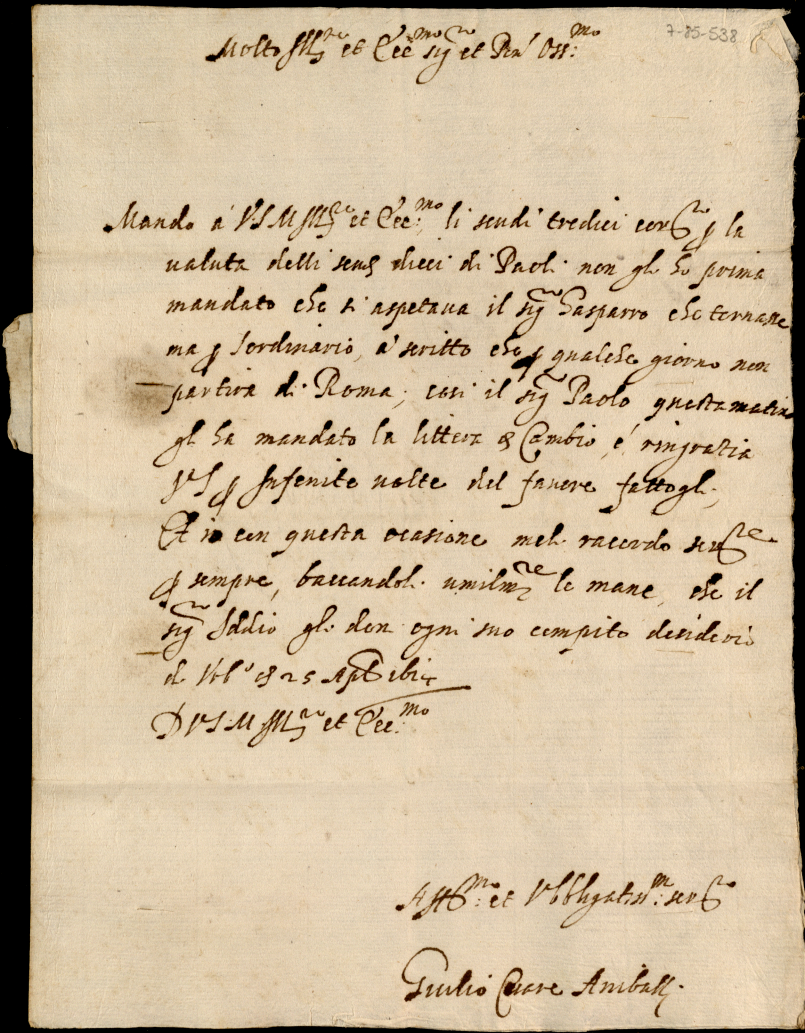 7-85-538
Molto Ill.re et Ecc.mo sig.r et Pa'n Oss.mo
Mando á V S M Ill.re et Ecc.mo, li scudi tredici p la
valuta delli scud dieci di Paoli non gli ho prima
mandato che si aspetava il sig.r Gasparro che tornasse
ma p l'ordinario, a' scritto che p qualche giorno non
partira di Roma, cosi il sig.r Paolo questa matina
gli ha mandato la littera di Cambio, é ringratia
V S p Infenite volte del favore fattogli,
Et io con questa ocasione meli racordo ser.re
p sempre, bacandoli umilm.te le mane, che il
sig.r Iddio gli don ogni suo compito desiderio
di di 25
D V S M Ill.re et Ecc.mo
Aff.mo et Vbbligatiss.m ser.re
Giulio Cesare Aniballi